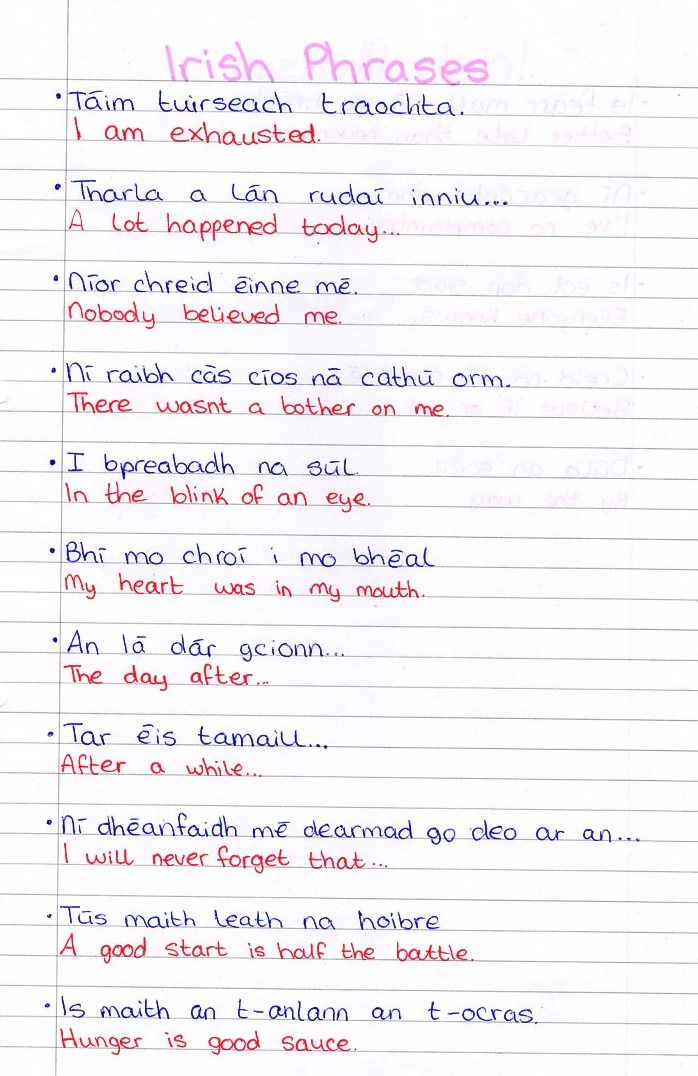 Irish Phrases
• Táim tuirseach traochta.
I am exhausted.
• Tharla a lán rudaí inniu...
A lot happened today...
• Níor chreid éinne mé.
Nobody believed me.
• Ní raibh cás cíos ná cathú orm.
There wasnt a bother on me.
• I bpreabadh na súl.
In the blink of an eye.
• Bhí mo chroí i mo bhéal
My heart was in my mouth.
• An lá dár gcionn...
The day after...
• Tar éis tamaill...
After a while...
• Ní dhéanfaidh mé dearmad go deo ar an...
I will never forget that...
• Tús maith leath na hoibre
A good start is half the battle.
• Is maith an t-anlann an t-ocras.
Hunger is good sauce.